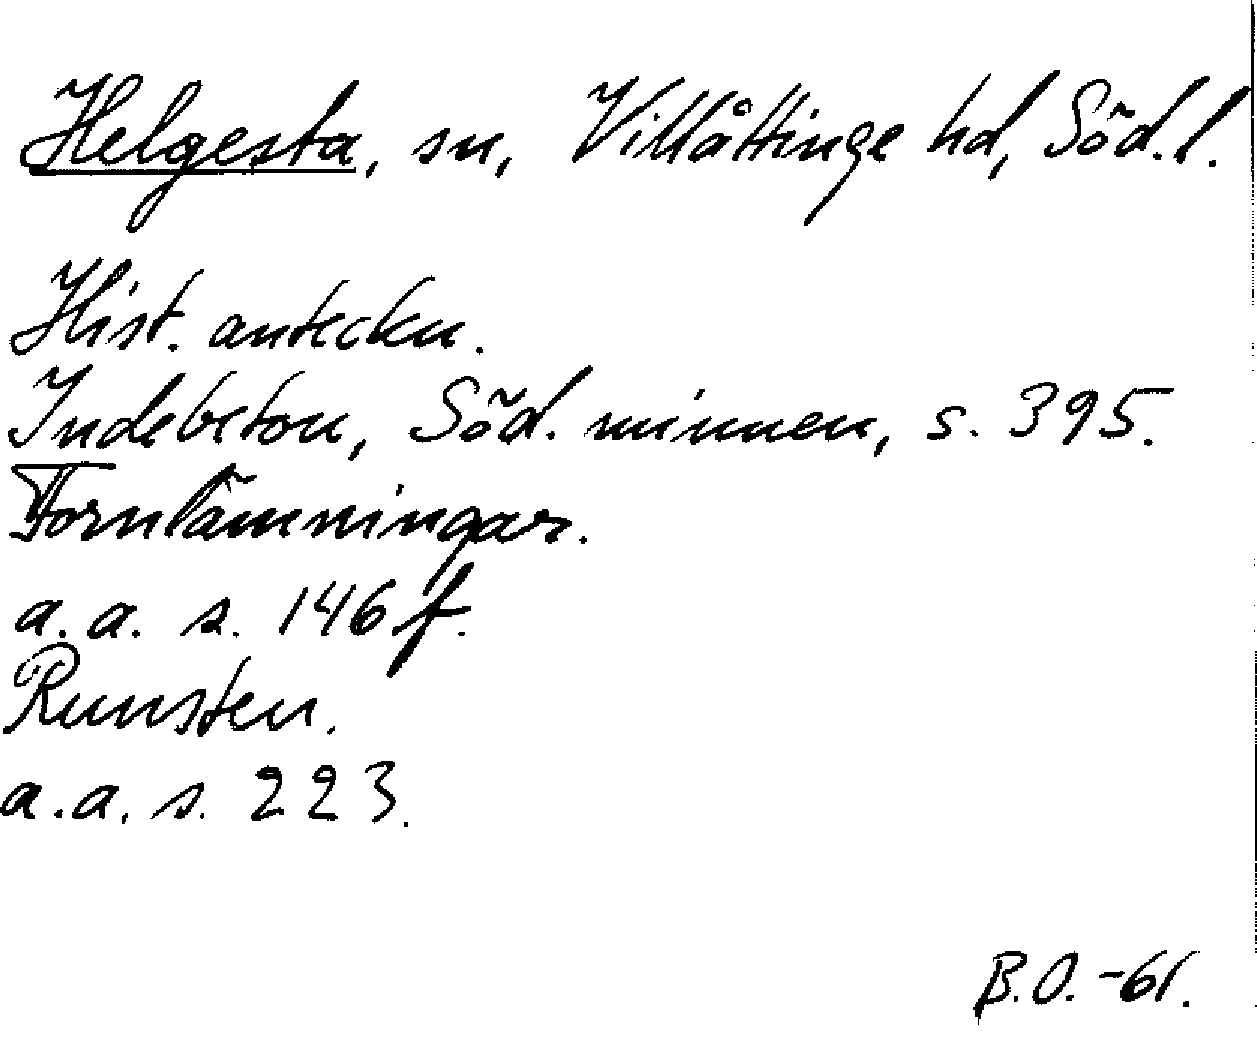 Helgesta, sn, Villåttinge hd, Söd.l.
Hist. anteckn.
Indebetou, Söd. minnen, s. 395.
Fornlämningar.
a.a. s. 146 f.
Runsten.
a.a. s. 223.
B.O. -61.